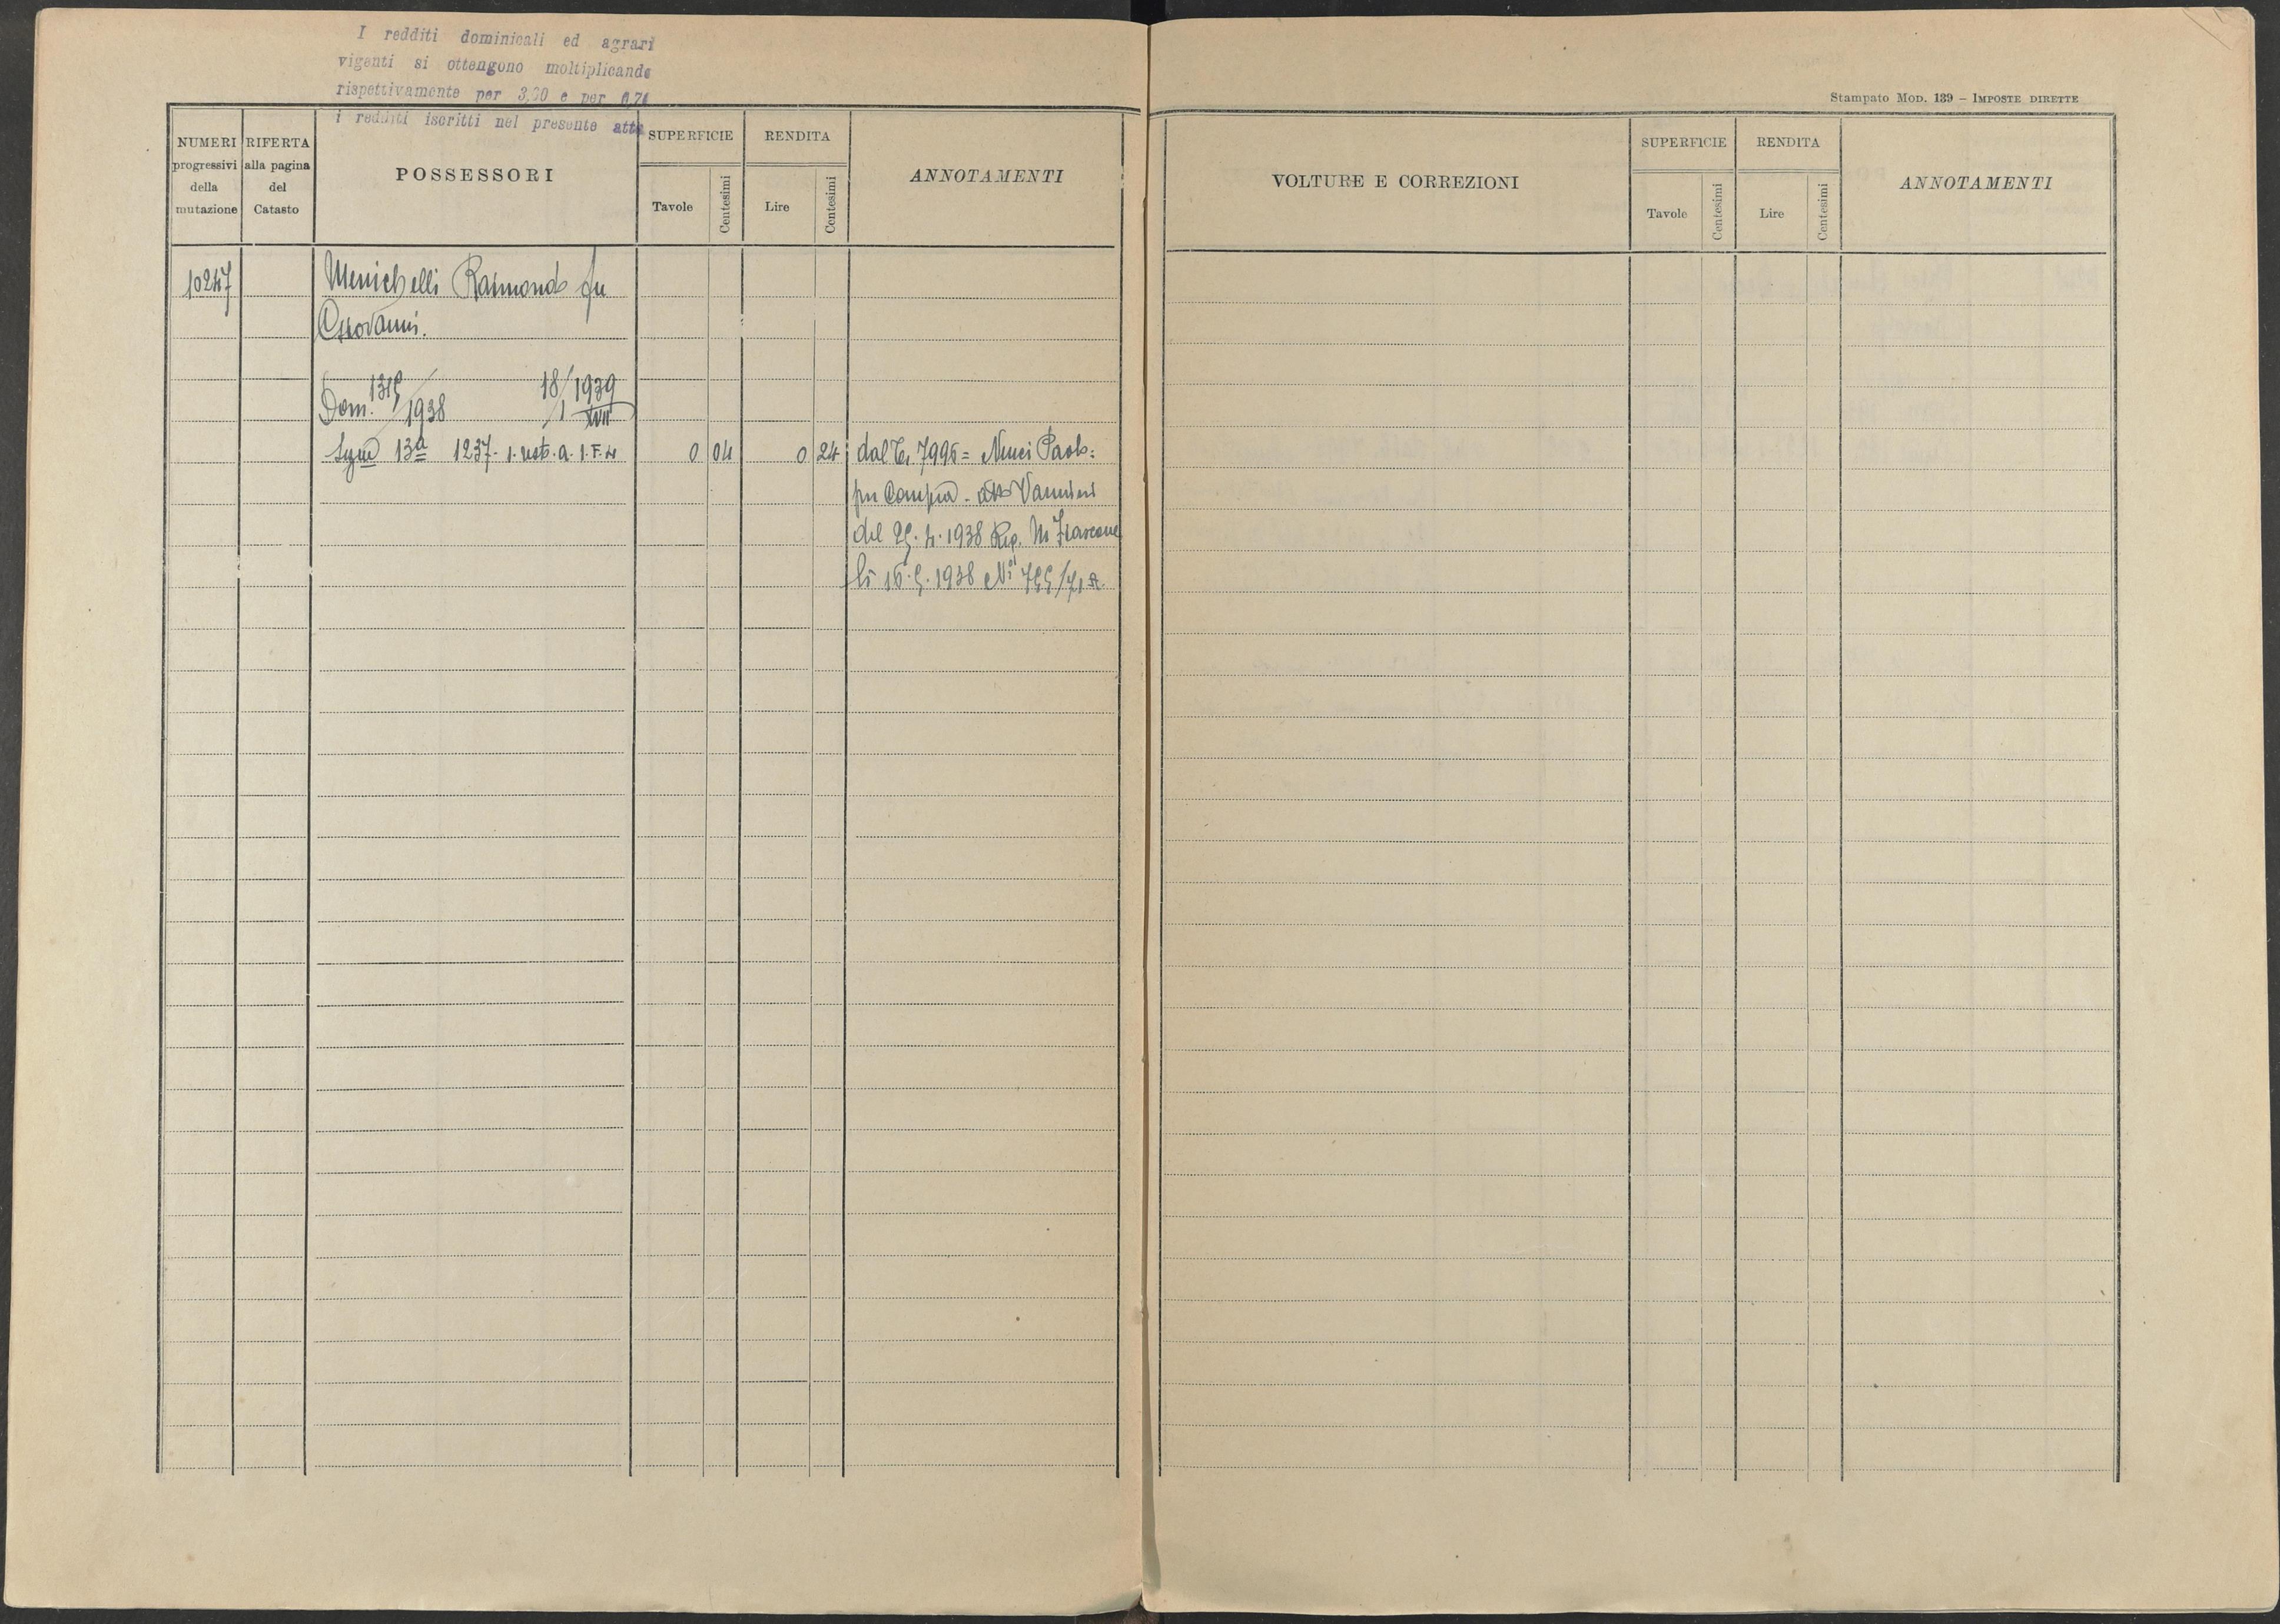 I redditi dominicali ed agrari
vigenti si ottengono moltiplicando
rispettivamente per 3,00 e per 0,70
i redditi iscritti nel presente atto
NUMERI progressivi della mutazione
RIFERTA alla pagina del Catasto
POSSESSORI
SUPERFICIE
Tavole Centesimi
RENDITA
Lire Centesimi
ANNOTAMENTI
10247 Menichelli Raimondo fu
Giovanni.
Dom. 1315/1938 18/1 1939 XVII
13ª 1237 0 04 0 24 dal 7995 = Nenci Paolo:
per Compra - atto Vannini
del 25.4.1938 Reg.
li 16.5.1938 Ni 755/71
Stampato MOD. 139 – IMPOSTE DIRETTE
VOLTURE E CORREZIONI
SUPERFICIE
Tavole Centesimi
RENDITA
Lire Centesimi
ANNOTAMENTI